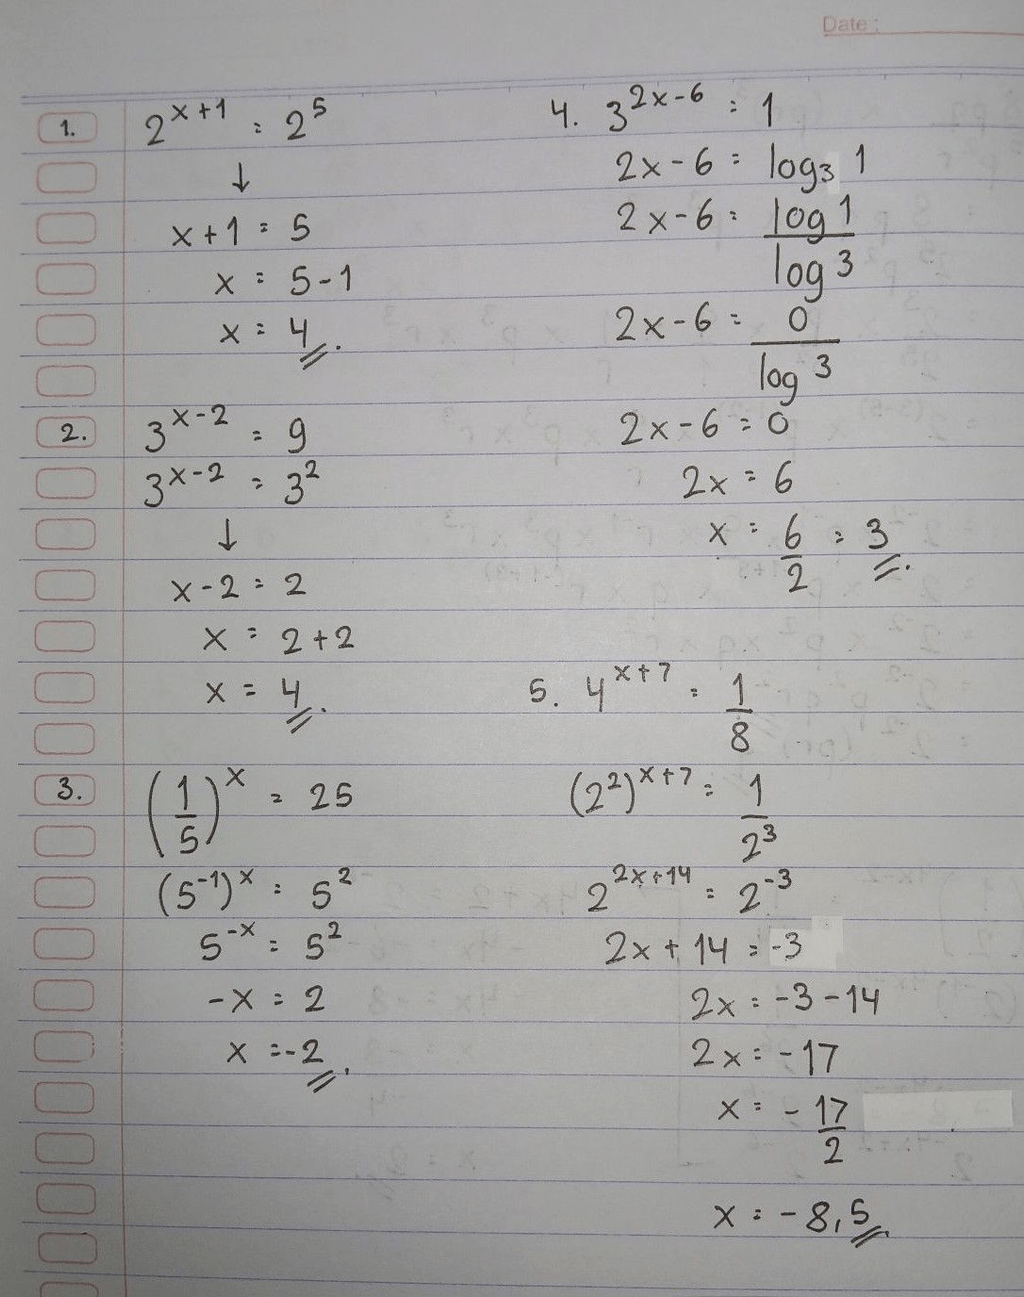 Date:
1. 2^(x+1) = 2^5
↓
x+1 = 5
x = 5-1
x = 4 .
2. 3^(x-2) = 9
3^(x-2) = 3^2
↓
x-2 = 2
x = 2+2
x = 4 .
3. (1/5)^x = 25
(5^-1)^x = 5^2
5^-x = 5^2
-x = 2
x = -2 .
4. 3^(2x-6) = 1
2x-6 = log₃ 1
2x-6 = log 1 / log 3
2x-6 = 0 / log 3
2x-6 = 0
2x = 6
x = 6/2 = 3 .
5. 4^(x+7) = 1/8
(2^2)^(x+7) = 1/2^3
2^(2x+14) = 2^-3
2x + 14 = -3
2x = -3-14
2x = -17
x = - 17/2
x = -8,5 .